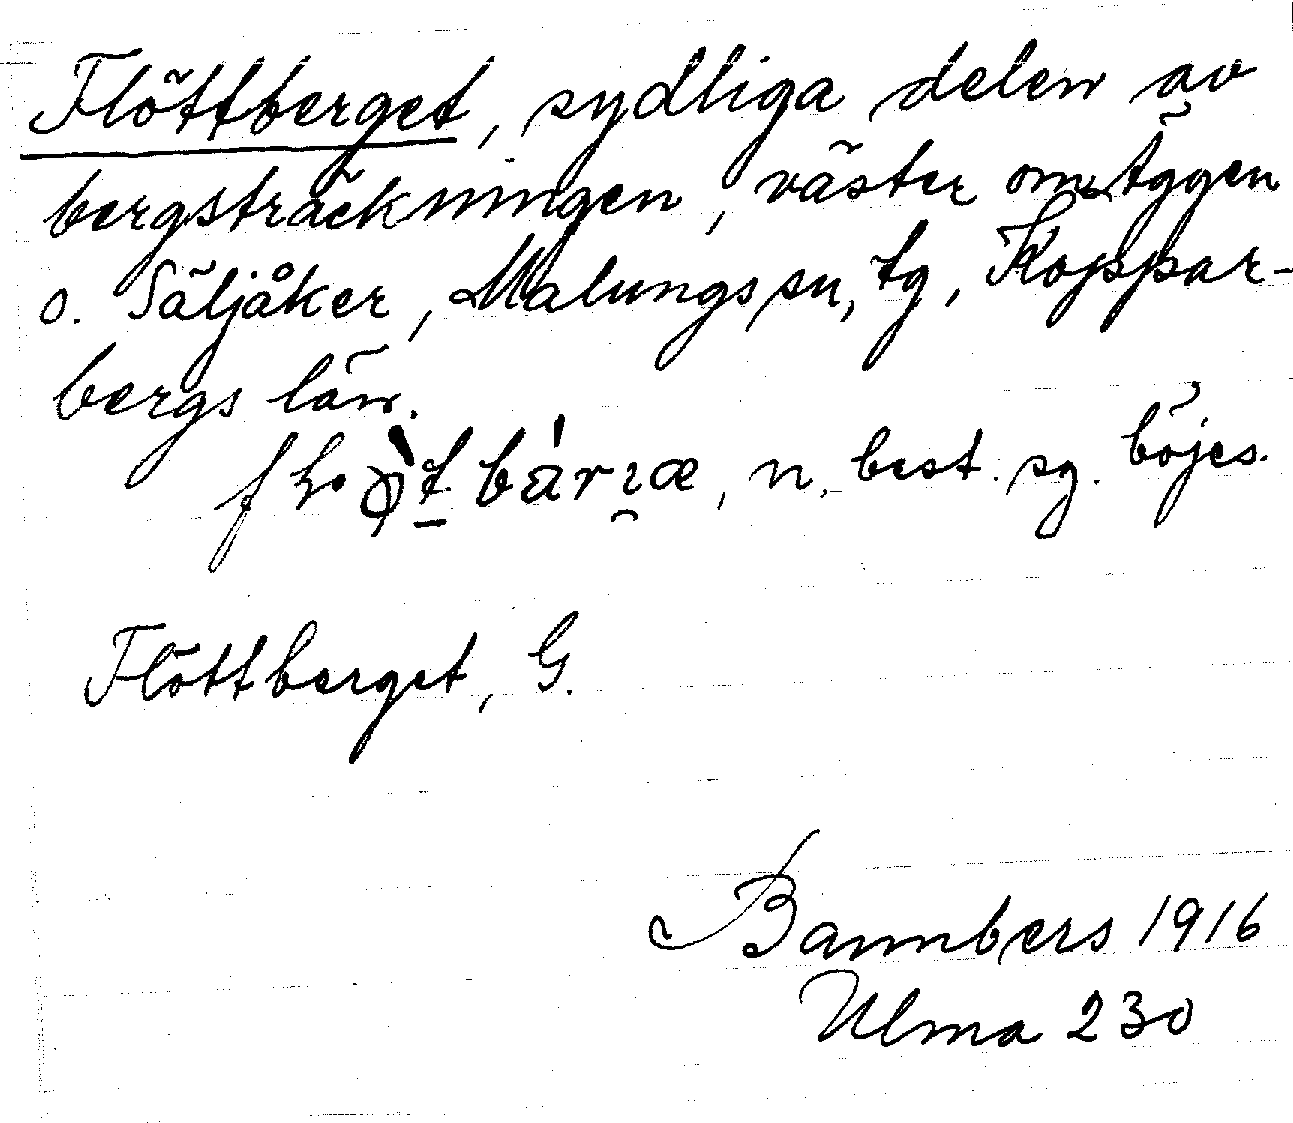 Flöttberget, sydliga delen av
bergsträckningen, väster om Äggen
o. Säljåker, Malungs sn, tg, Koppar-
bergs län.
n. best. sg. böjes.
Flöttberget, G.
Bannbers 1916
Ulma 230